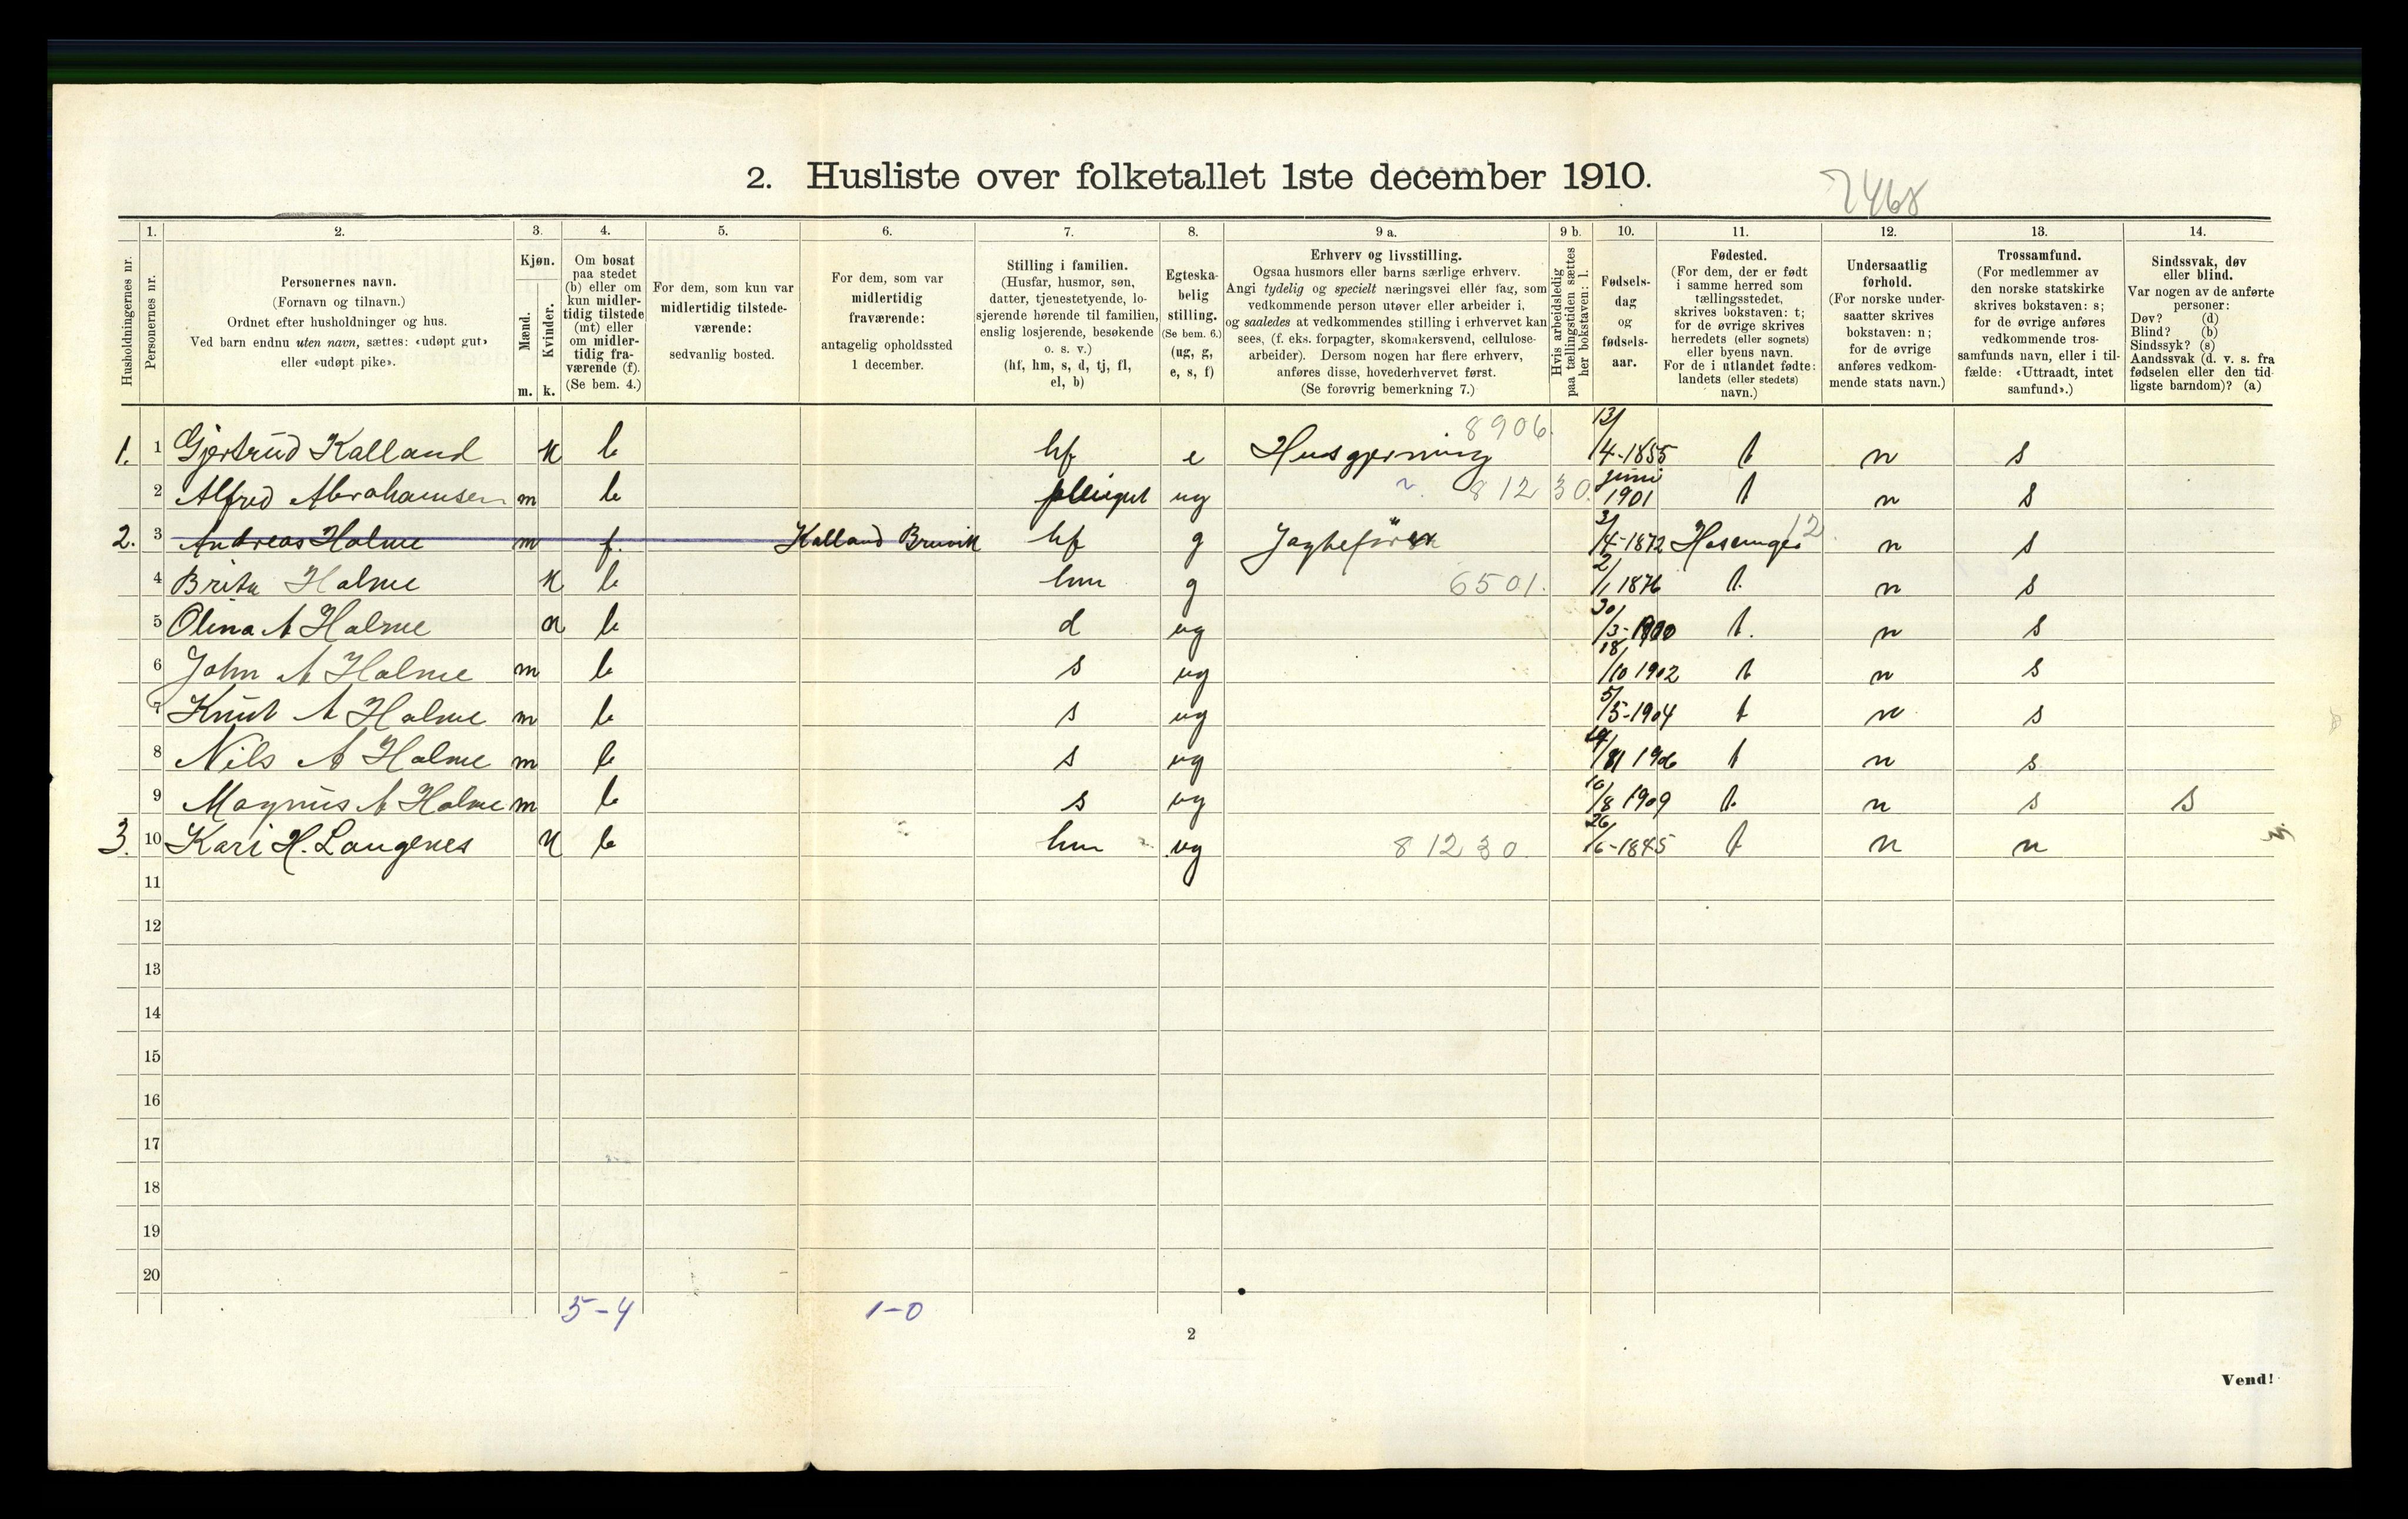 2. Husliste over folketallet 1ste december 1910.
7468
1. 2. 3. 4. 5. 6. 7. 8. 9 a. 9 b. 10. 11. 12. 13. 14.
Husholdningernes nr.
Personernes nr.
Personernes navn.
(Fornavn og tilnavn.)
Ordnet efter husholdninger og hus.
Ved barn endnu uten navn, sættes: «udøpt gut»
eller «udøpt pike».
Kjøn.
Mænd.
Kvinder.
m. k.
Om bosat
paa stedet
(b) eller om
kun midler-
tidig tilstede
(mt) eller
om midler-
tidig fra-
værende (f).
(Se bem. 4.)
For dem, som kun var
midlertidig tilstede-
værende:
sedvanlig bosted.
For dem, som var
midlertidig
fraværende:
antagelig opholdssted
1 december.
Stilling i familien.
(Husfar, husmor, søn,
datter, tjenestetyende, lo-
sjerende hørende til familien,
enslig losjerende, besøkende
o. s. v.)
(hf, hm, s, d, tj, fl,
el, b)
Egteska-
belig
stilling.
(Se bem. 6.)
(ug, g,
e, s, f)
Erhverv og livsstilling.
Ogsaa husmors eller barns særlige erhverv.
Angi tydelig og specielt næringsvei eller fag, som
vedkommende person utøver eller arbeider i,
og saaledes at vedkommendes stilling i erhvervet kan
sees, (f. eks. forpagter, skomakersvend, cellulose-
arbeider). Dersom nogen har flere erhverv,
anføres disse, hovederhvervet først.
(Se forøvrig bemerkning 7.)
Hvis arbeidsledig
paa tællingstiden sættes
her bokstaven: l.
Fødsels-
dag
og
fødsels-
aar.
Fødested.
(For dem, der er født
i samme herred som
tællingsstedet,
skrives bokstaven: t;
for de øvrige skrives
herredets (eller sognets)
eller byens navn.
For de i utlandet fødte:
landets (eller stedets)
navn.)
Undersaatlig
forhold.
(For norske under-
saatter skrives
bokstaven: n;
for de øvrige
anføres vedkom-
mende stats navn.)
Trossamfund.
(For medlemmer av
den norske statskirke
skrives bokstaven: s;
for de øvrige anføres
vedkommende tros-
samfunds navn, eller i til-
fælde: «Uttraadt, intet
samfund».)
Sindssvak, døv
eller blind.
Var nogen av de anførte
personer:
Døv? (d)
Blind? (b)
Sindssyk? (s)
Aandssvak (d. v. s. fra
fødselen eller den tid-
ligste barndom)? (a)
1. 1 Gjertrud Kalland k b hf e Husgjerning 8906. 13/4-1855 t n s
2 Alfred Abrahamsen m b pleiegut ug 8 12 30. juni 1901 t n s
2. 3 Andreas Holme m f. Kalland Bruvik hf g 3/4-1872 12 n s
4 Brita Holme k b hm g 6501. 2/1 1876 t. n s
5 Olina A Holme b d ug 30/3-1900 t. n s
6 John A Holme m b s ug 18/10 1902 t n s
7 Knut A Holme m b s ug 5/5-1904 t n s
8 Nils A Holme m b s ug 1906 t n s
9 Magnus A Holme m b s ug 10/8 1909 t. n s S
3. 10 Kari H. Langenes k b hm ug 8 12 30. 26/6-1845 t n n
11
12
13
14
15
16
17
18
19
20
5-4 1-0
2
Vend!